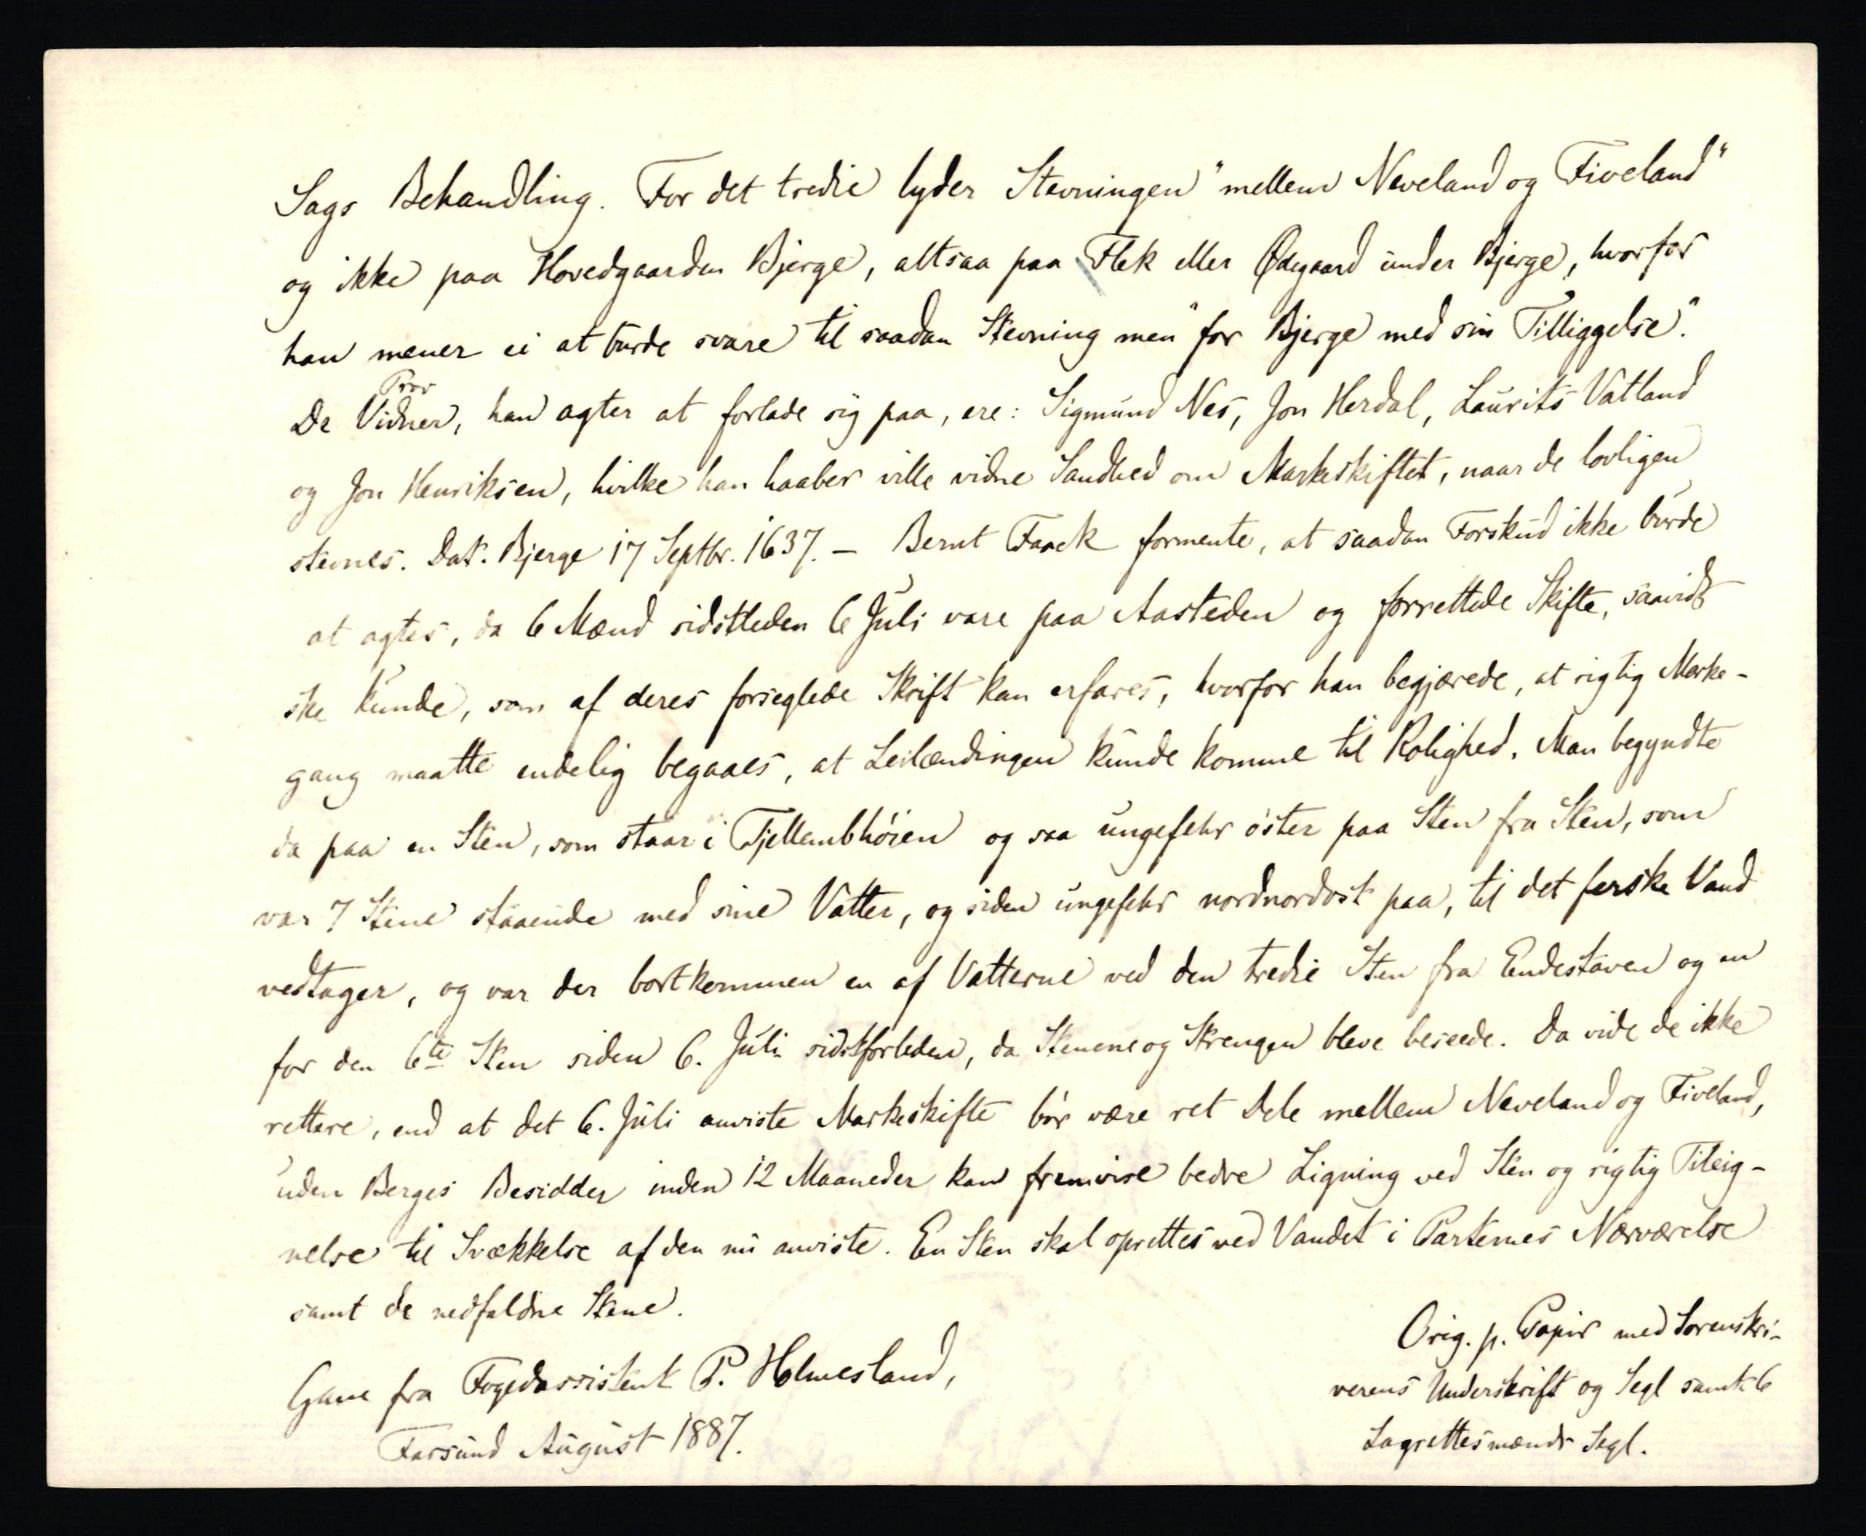 Sags Behandling. For det tredie lyder Stevningen "mellem Neveland og Fiveland"
og ikke paa Hovedgaarden Bjerge, altsaa paa Flek eller Ødegaard under Bjerge, hvorfor
han mener ei at burde svare til saadan Stevning men "for Bjerge med sin Tilliggelse".
Prov
De Vidner, han agter at forlade sig paa, ere: Sigmund Nes, Jon Herdal, Laurits Vatland
og Jon Henriksen, hvilke han haaber ville vidne Sandhed om Markeskiftet, naar de lovligen
stevnes. Dat. Bjerge 17 Septbr. 1637. — Bernt Faack formente, at saadan Forskud ikke burde
at agtes, da 6 Mænd sidstleden 6 Juli vare paa Aasteden og forrettede Skifte, saavidt
ske kunde, som af deres forseglede Skrift kan erfares, hvorfor han begjærede, at rigtig Marke-
gang maatte endelig begaaes, at Leilændingen kunde komme til Rolighed. Man begyndte
da paa en Sten, som staar i Tjellembhöien og saa ungefehr öster paa Sten fra Sten, som
var 7 Stene staaende med sine Vatter, og siden ungefehr nordnordost paa, til det ferske Vand
vedtager, og var der bortkommen en af Vatterne ved den tredie Sten fra Endestaven og en
for den 6te Sten siden 6. Juli sidstforleden, da Stenene og Strengen bleve beseede. Da vide de ikke
rettere, end at det 6. Juli anviste Markeskifte bör være ret Dele mellem Neveland og Fiveland,
uden Berges Besidder inden 12 Maaneder kan fremvise bedre Ligning ved Sten og rigtig Tileig-
nelse til Svækkelse af den nu anviste. En Sten skal oprettes ved Vandet i Parternes Nærværelse
samt de nedfaldne Stene.
Orig. p. Papir med Sorenskri-
verens Underskrift og Segl samt 6
Lagrettesmænds Segl.
Gave fra Fogedassistent P. Holmesland,
Farsund August 1887.